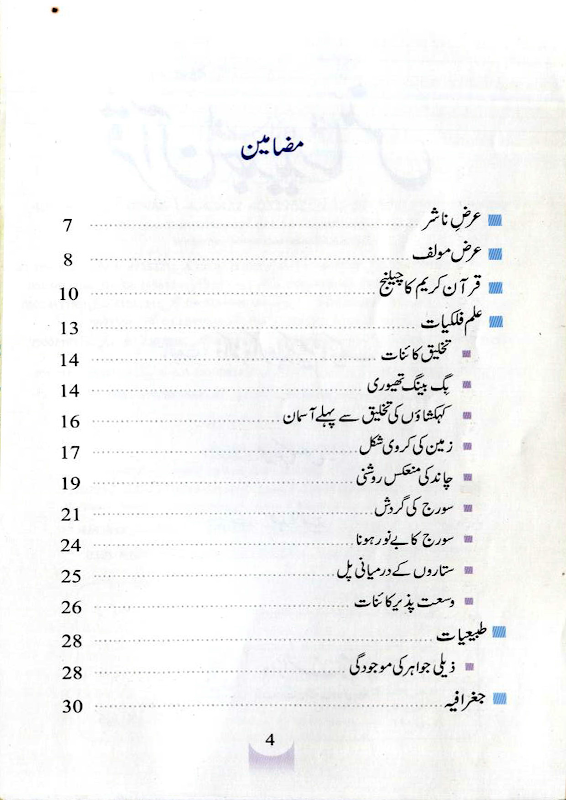 مضامین
عرضِ ناشر 7
عرض مولف 8
قرآن کریم کا چیلنج 10
علم فلکیات 13
تخلیق کائنات 14
بگ بینگ تھیوری 14
کہکشاؤں کی تخلیق سے پہلے آسمان 16
زمین کی کروی شکل 17
چاند کی منعکس روشنی 19
سورج کی گردش 21
سورج کا بے نور ہونا 24
ستاروں کے درمیانی پل 25
وسعت پذیر کائنات 26
طبیعیات 28
ذیلی جواہر کی موجودگی 28
جغرافیہ 30
4